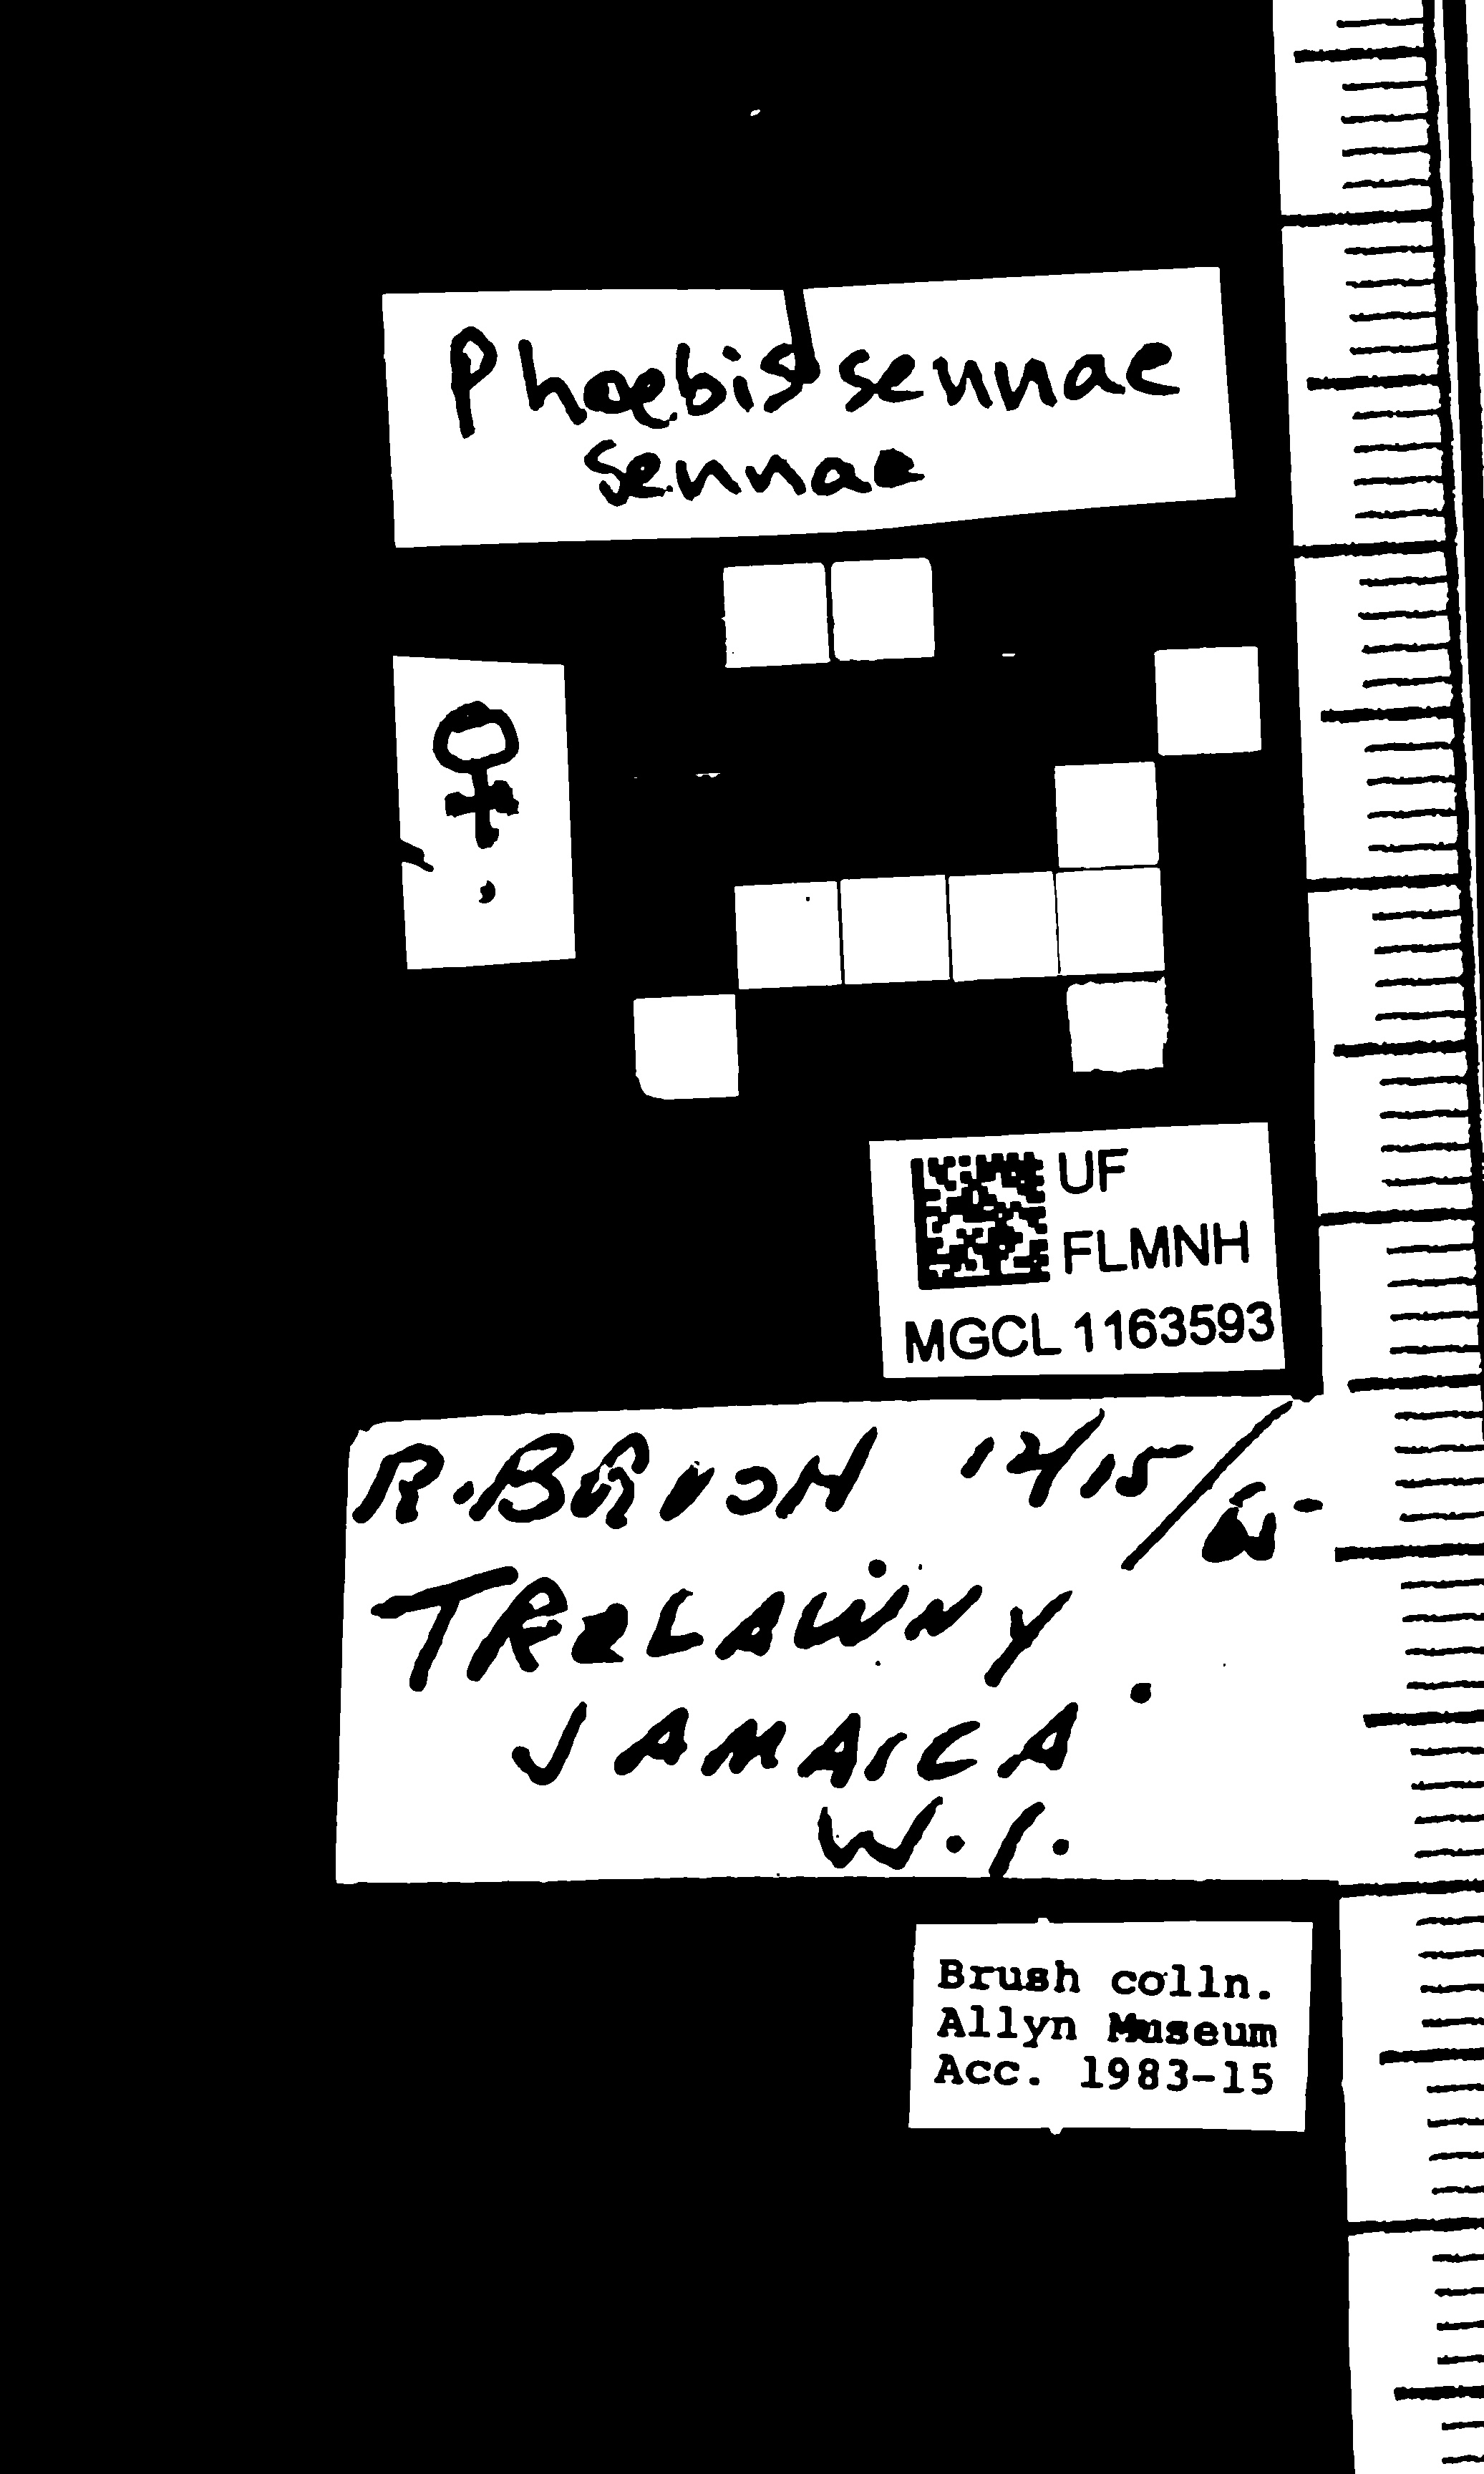 Phoebis sennae
sennae
♀
UF
FLMNH
MGCL 1163593
R. BRUSH 12/15/
TRELAWNY
JAMAICA
W.I.
Brush colln.
Allyn Museum
Acc. 1983-15